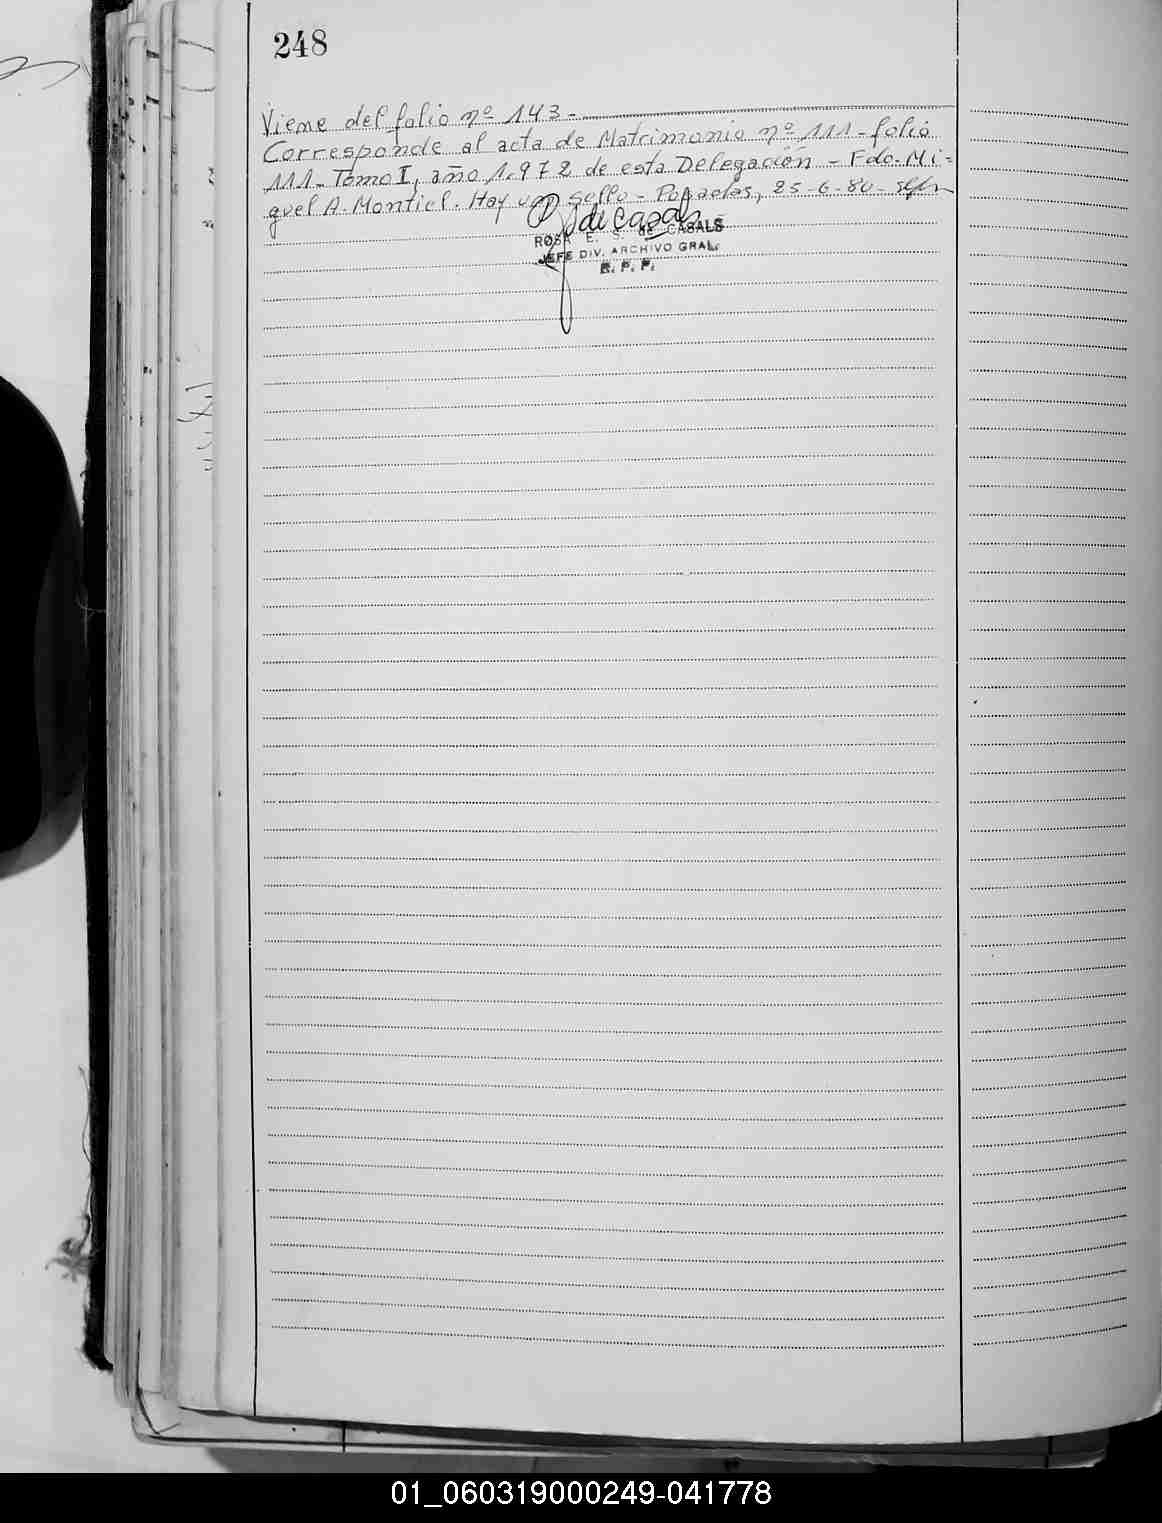 248
Viene del folio nº 143-
Corresponde al acta de Matrimonio nº 111- folio
111- Tomo I, año 1.972 de esta Delegación - Fdo. Mi=
guel A. Montiel. Hay un sello - Posadas, 25-6-80-
de Casals
ROSA E. S. de CASALS
JEFE DIV. ARCHIVO GRAL.
R. P. P.
01_060319000249-041778